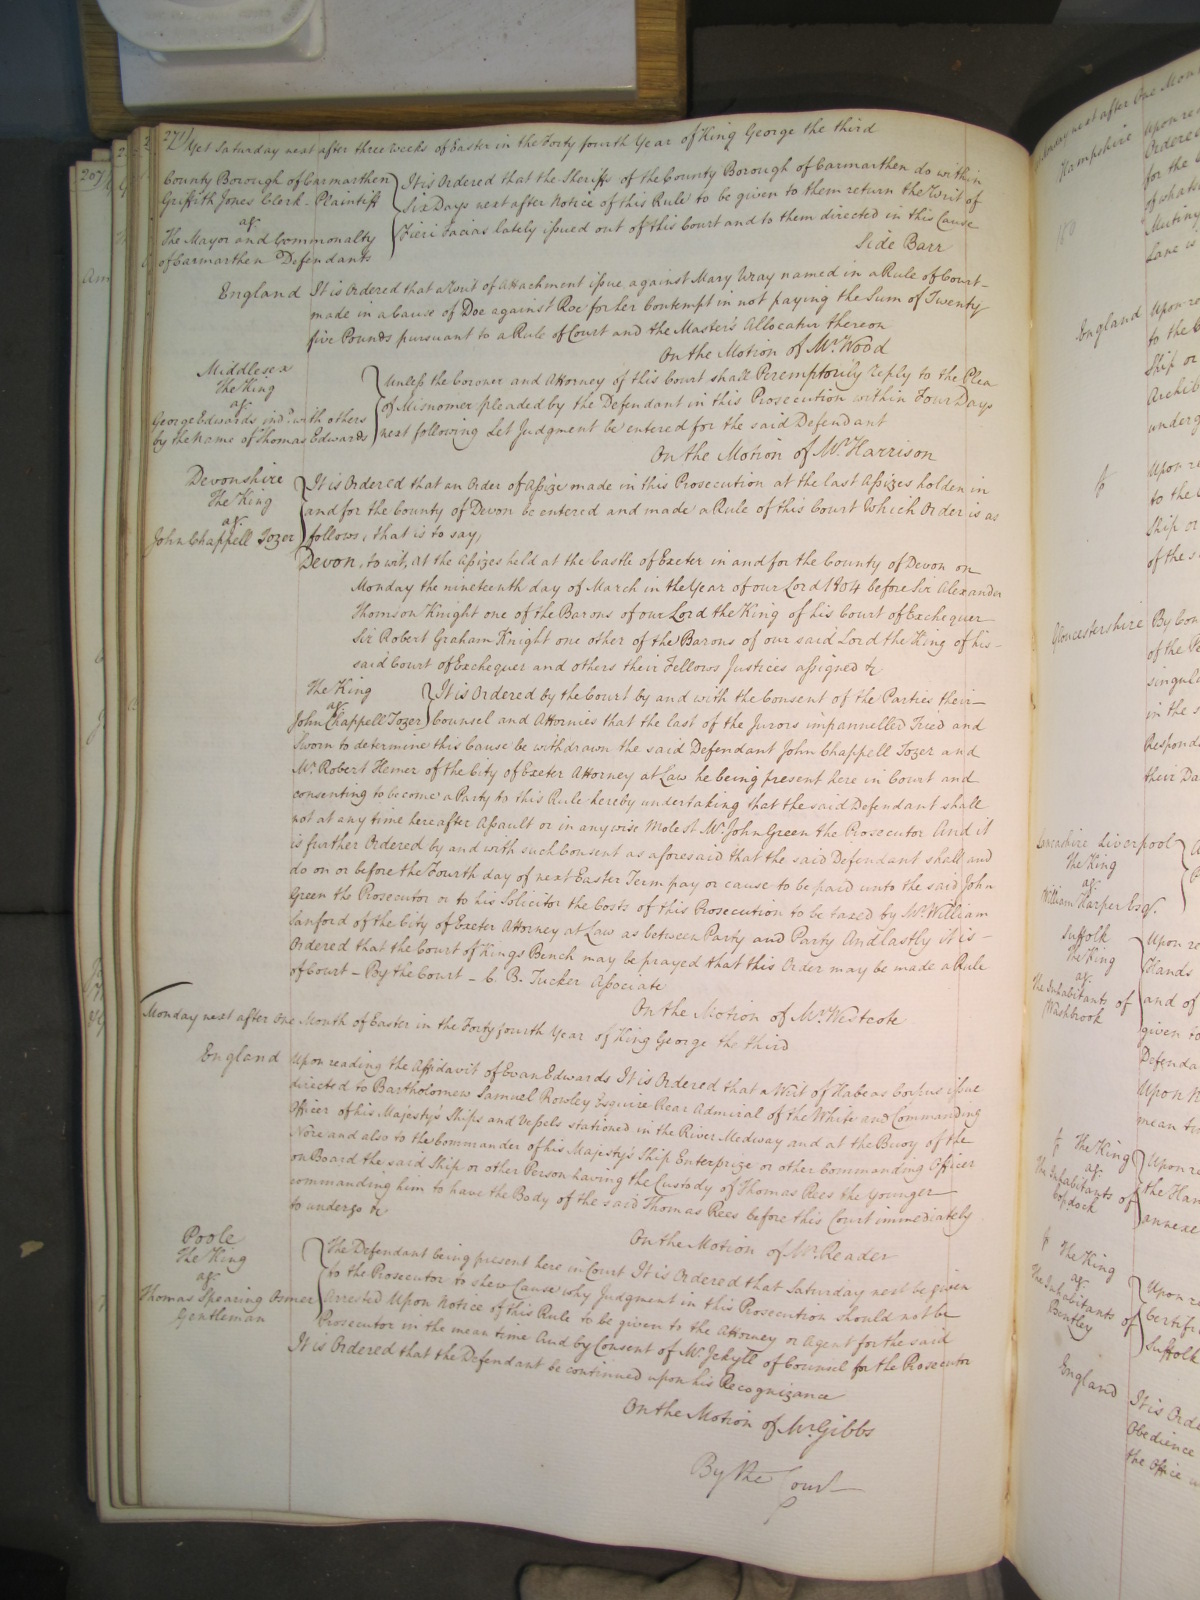 271/ Yet Saturday next after three weeks of Easter in the Forty fourth Year of King George the third
County Borough of Carmarthen
Griffith Jones Clerk - Plaintiff
agt.
The Mayor and Commonalty
of Carmarthen Defendants
It is Ordered that the Sheriffs of the County Borough of Carmarthen do within
Six Days next after Notice of this Rule to be given to them return the Writ of
Fieri facias lately issued out of this Court and to them directed in this Cause
Side Barr
England It is Ordered that a Writ of Attachment issue against Mary Wray named in a Rule of Court
made in a Cause of Doe against Roe for her Contempt in not paying the Sum of Twenty
five Pounds pursuant to a Rule of Court and the Master's Allocatur thereon
On the Motion of Mr. Wood
Middlesex
The King
agt.
George Edwards ind.d with others
by the name of Thomas Edwards
Unless the Coroner and Attorney of this Court shall Peremptorily Reply to the Plea
of Misnomer pleaded by the Defendant in this Prosecution within Four Days
next following Let Judgment be entered for the said Defendant
On the Motion of Mr. Harrison
Devonshire
The King
agt.
John Chappell Tozer
It is Ordered that an Order of Assize made in this Prosecution at the last Assizes holden in
and for the County of Devon be entered and made a Rule of this Court Which Order is as
follows, that is to say,
Devon, to wit, At the Assizes held at the Castle of Exeter in and for the County of Devon on
Monday the nineteenth day of March in the Year of our Lord 1804 before Sir Alexander
Thomson Knight one of the Barons of our Lord the King of his Court of Exchequer
Sir Robert Graham Knight one other of the Barons of our said Lord the King of his -
said Court of Exchequer and others their Fellows Justices assigned &c
The King
agt.
John Chappell Tozer
It is Ordered by the Court by and with the Consent of the Parties their
Counsel and Attornies that the last of the Jurors impannelled Tried and
Sworn to determine this Cause be withdrawn the said Defendant John Chappell Tozer and
Mr. Robert Hemer of the City of Exeter Attorney at Law he being present here in Court and
consenting to become a Party to this Rule hereby undertaking that the said Defendant shall
not at any time hereafter Assault or in any wise Molest Mr. John Green the Prosecutor And it
is further Ordered by and with such Consent as aforesaid that the said Defendant shall and
do on or before the Fourth day of next Easter Term pay or cause to be paid unto the said John
Green the Prosecutor or to his Solicitor the Costs of this Prosecution to be taxed by Mr. William
Sanford of the City of Exeter Attorney at Law as between Party and Party And lastly it is -
Ordered that the Court of Kings Bench may be prayed that this Order may be made a Rule
of Court - By the Court - C. B. Tucker Associate
On the Motion of Mr. Westcote
Monday next after one Month of Easter in the Forty fourth Year of King George the third
England Upon reading the Affidavit of Evan Edwards It is Ordered that a Writ of Habeas Corpus issue
directed to Bartholomew Samuel Rowley Esquire Rear Admiral of the White and Commanding
Officer of his Majesty's Ships and Vessels stationed in the River Medway and at the Buoy of the
Nore and also to the Commander of his Majesty's Ship Enterprize or other Commanding Officer
on Board the said Ship or other Person having the Custody of Thomas Rees the younger
commanding him to have the Body of the said Thomas Rees before this Court immediately
to undergo &c
On the Motion of Mr. Reader
Poole
The King
agt.
Thomas Spearing Osmer
Gentleman
The Defendant being present here in Court It is Ordered that Saturday next be given
to the Prosecutor to shew Cause why Judgment in this Prosecution should not be
Arrested Upon Notice of this Rule to be given to the Attorney or Agent for the said
Prosecutor in the mean time And by Consent of Mr. Jekyll of Counsel for the Prosecutor
It is Ordered that the Defendant be continued upon his Recognizance
On the Motion of Mr. Gibbs
By the Court
Hampshire
England
Gloucestershire
Lancashire Liverpool
The King
agt.
William Harper Esqr.
Suffolk
The King
agt.
The Inhabitants of
Washbrook
The King
agt.
The Inhabitants of
Copdock
The King
agt.
The Inhabitants of
Bentley
England